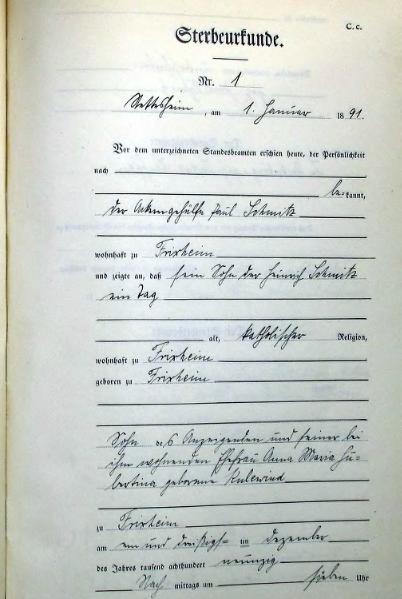 C. c.
Sterbeurkunde.
Nr. 1
Nettesheim, am 1. Januar 1891.
Vor dem unterzeichneten Standesbeamten erschien heute, der Persönlichkeit
nach
bekannt,
der Ackergehülfe Paul Schmitz
wohnhaft zu Frixheim
und zeigte an, daß sein Sohn der Heinrich Schmitz
ein Tag
alt, katholischer Religion,
wohnhaft zu Frixheim
geboren zu Frixheim
Sohn des Anzeigenden und seiner bei
ihm wohnenden Ehefrau Anna Maria Hu-
bertina geborene
zu Frixheim
am ein und dreißigsten Dezember
des Jahres tausend achthundert neunzig
Nachmittags um sieben Uhr